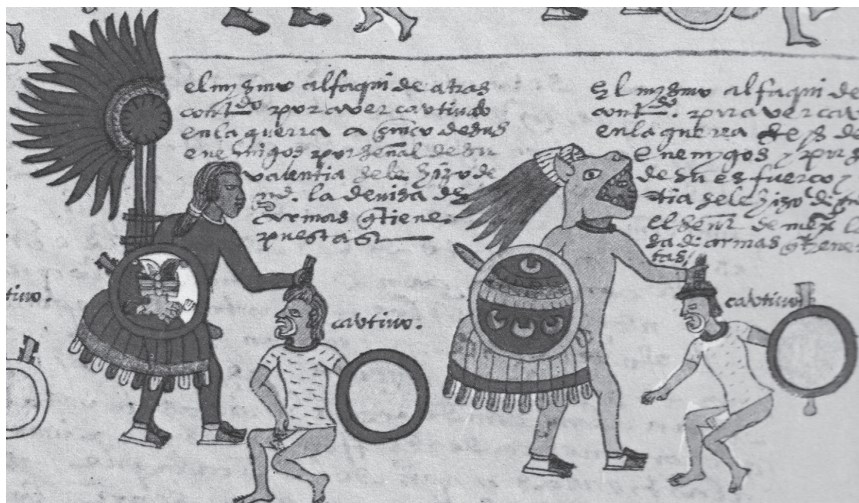 el mysmo alfaqui de atras
contdo. por aver cautivado
en la guerra a çinco de sus
enemigos por señal de su
valentia se le hizo de
md. la devisa de
armas q̃ tiene
puesta
cautivo.
El mysmo alfaqui de
contdo. por aver cau
en la guerra seys de
enemygos y por s
de su esfuerço y
tia se le hizo
el señor de mexico
sa de armas q̃ tiene
tas,
cautivo
tivo.